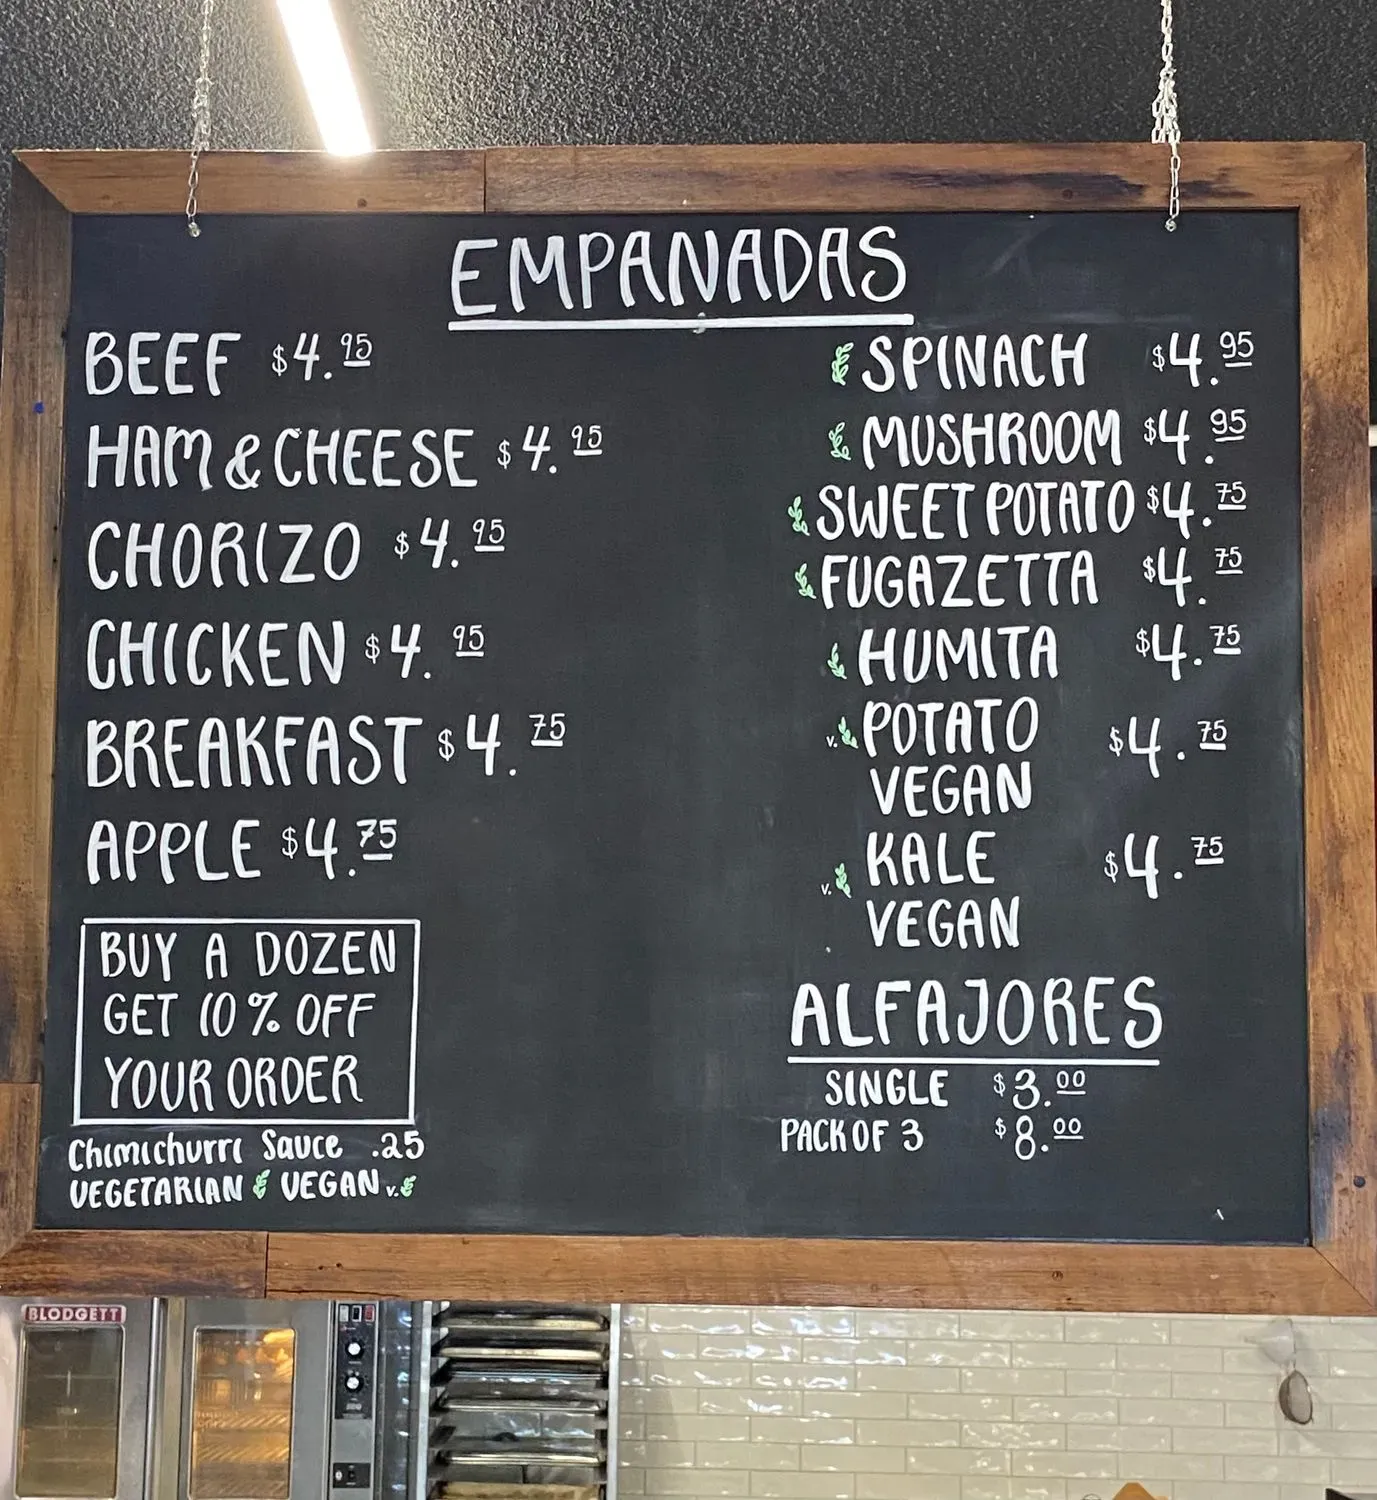 EMPANADAS
BEEF $4.95
HAM & CHEESE $4.95
CHORIZO $4.95
CHICKEN $4.95
BREAKFAST $4.75
APPLE $4.75
BUY A DOZEN
GET 10% OFF
YOUR ORDER
Chimichurri Sauce .25
VEGETARIAN VEGAN v.
SPINACH $4.95
MUSHROOM $4.95
SWEET POTATO $4.75
FUGAZETTA $4.75
HUMITA $4.75
v. POTATO $4.75
VEGAN
v. KALE $4.75
VEGAN
ALFAJORES
SINGLE $3.00
PACK OF 3 $8.00
BLODGETT